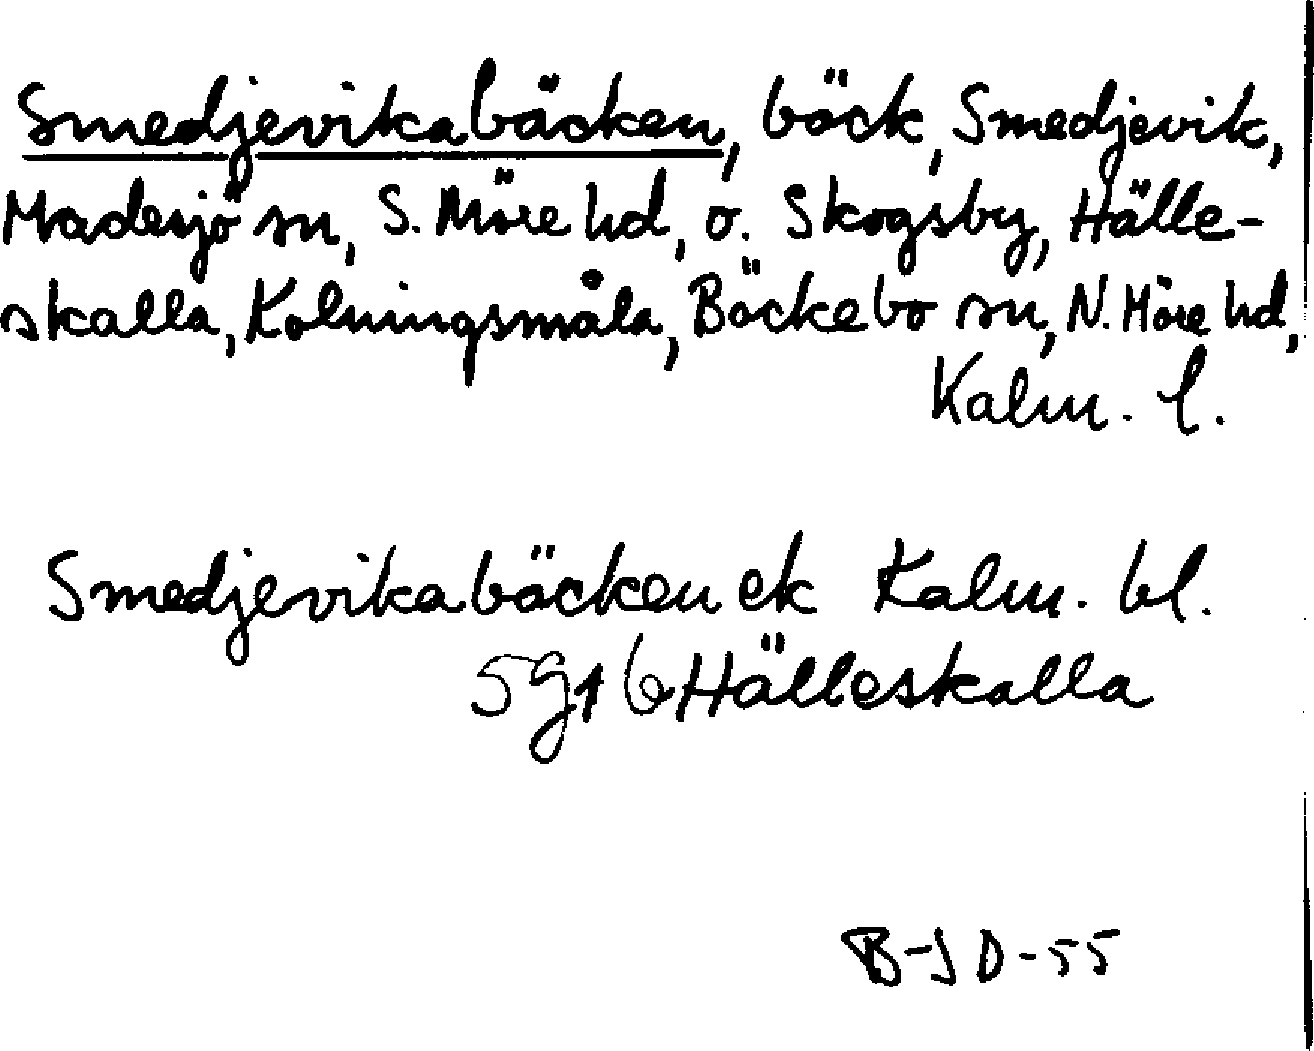 Smedjevikabäcken, bäck, Smedjevik,
Madesjö sn, S. Möre hd, o. Skogsby, Hälle-
skalla, Kolningsmåla, Bäckebo sn, N. Möre hd,
Kalm. l.
Smedjevikabäcken ek Kalm. bl.
5g1b Hälleskalla
B-J D-55